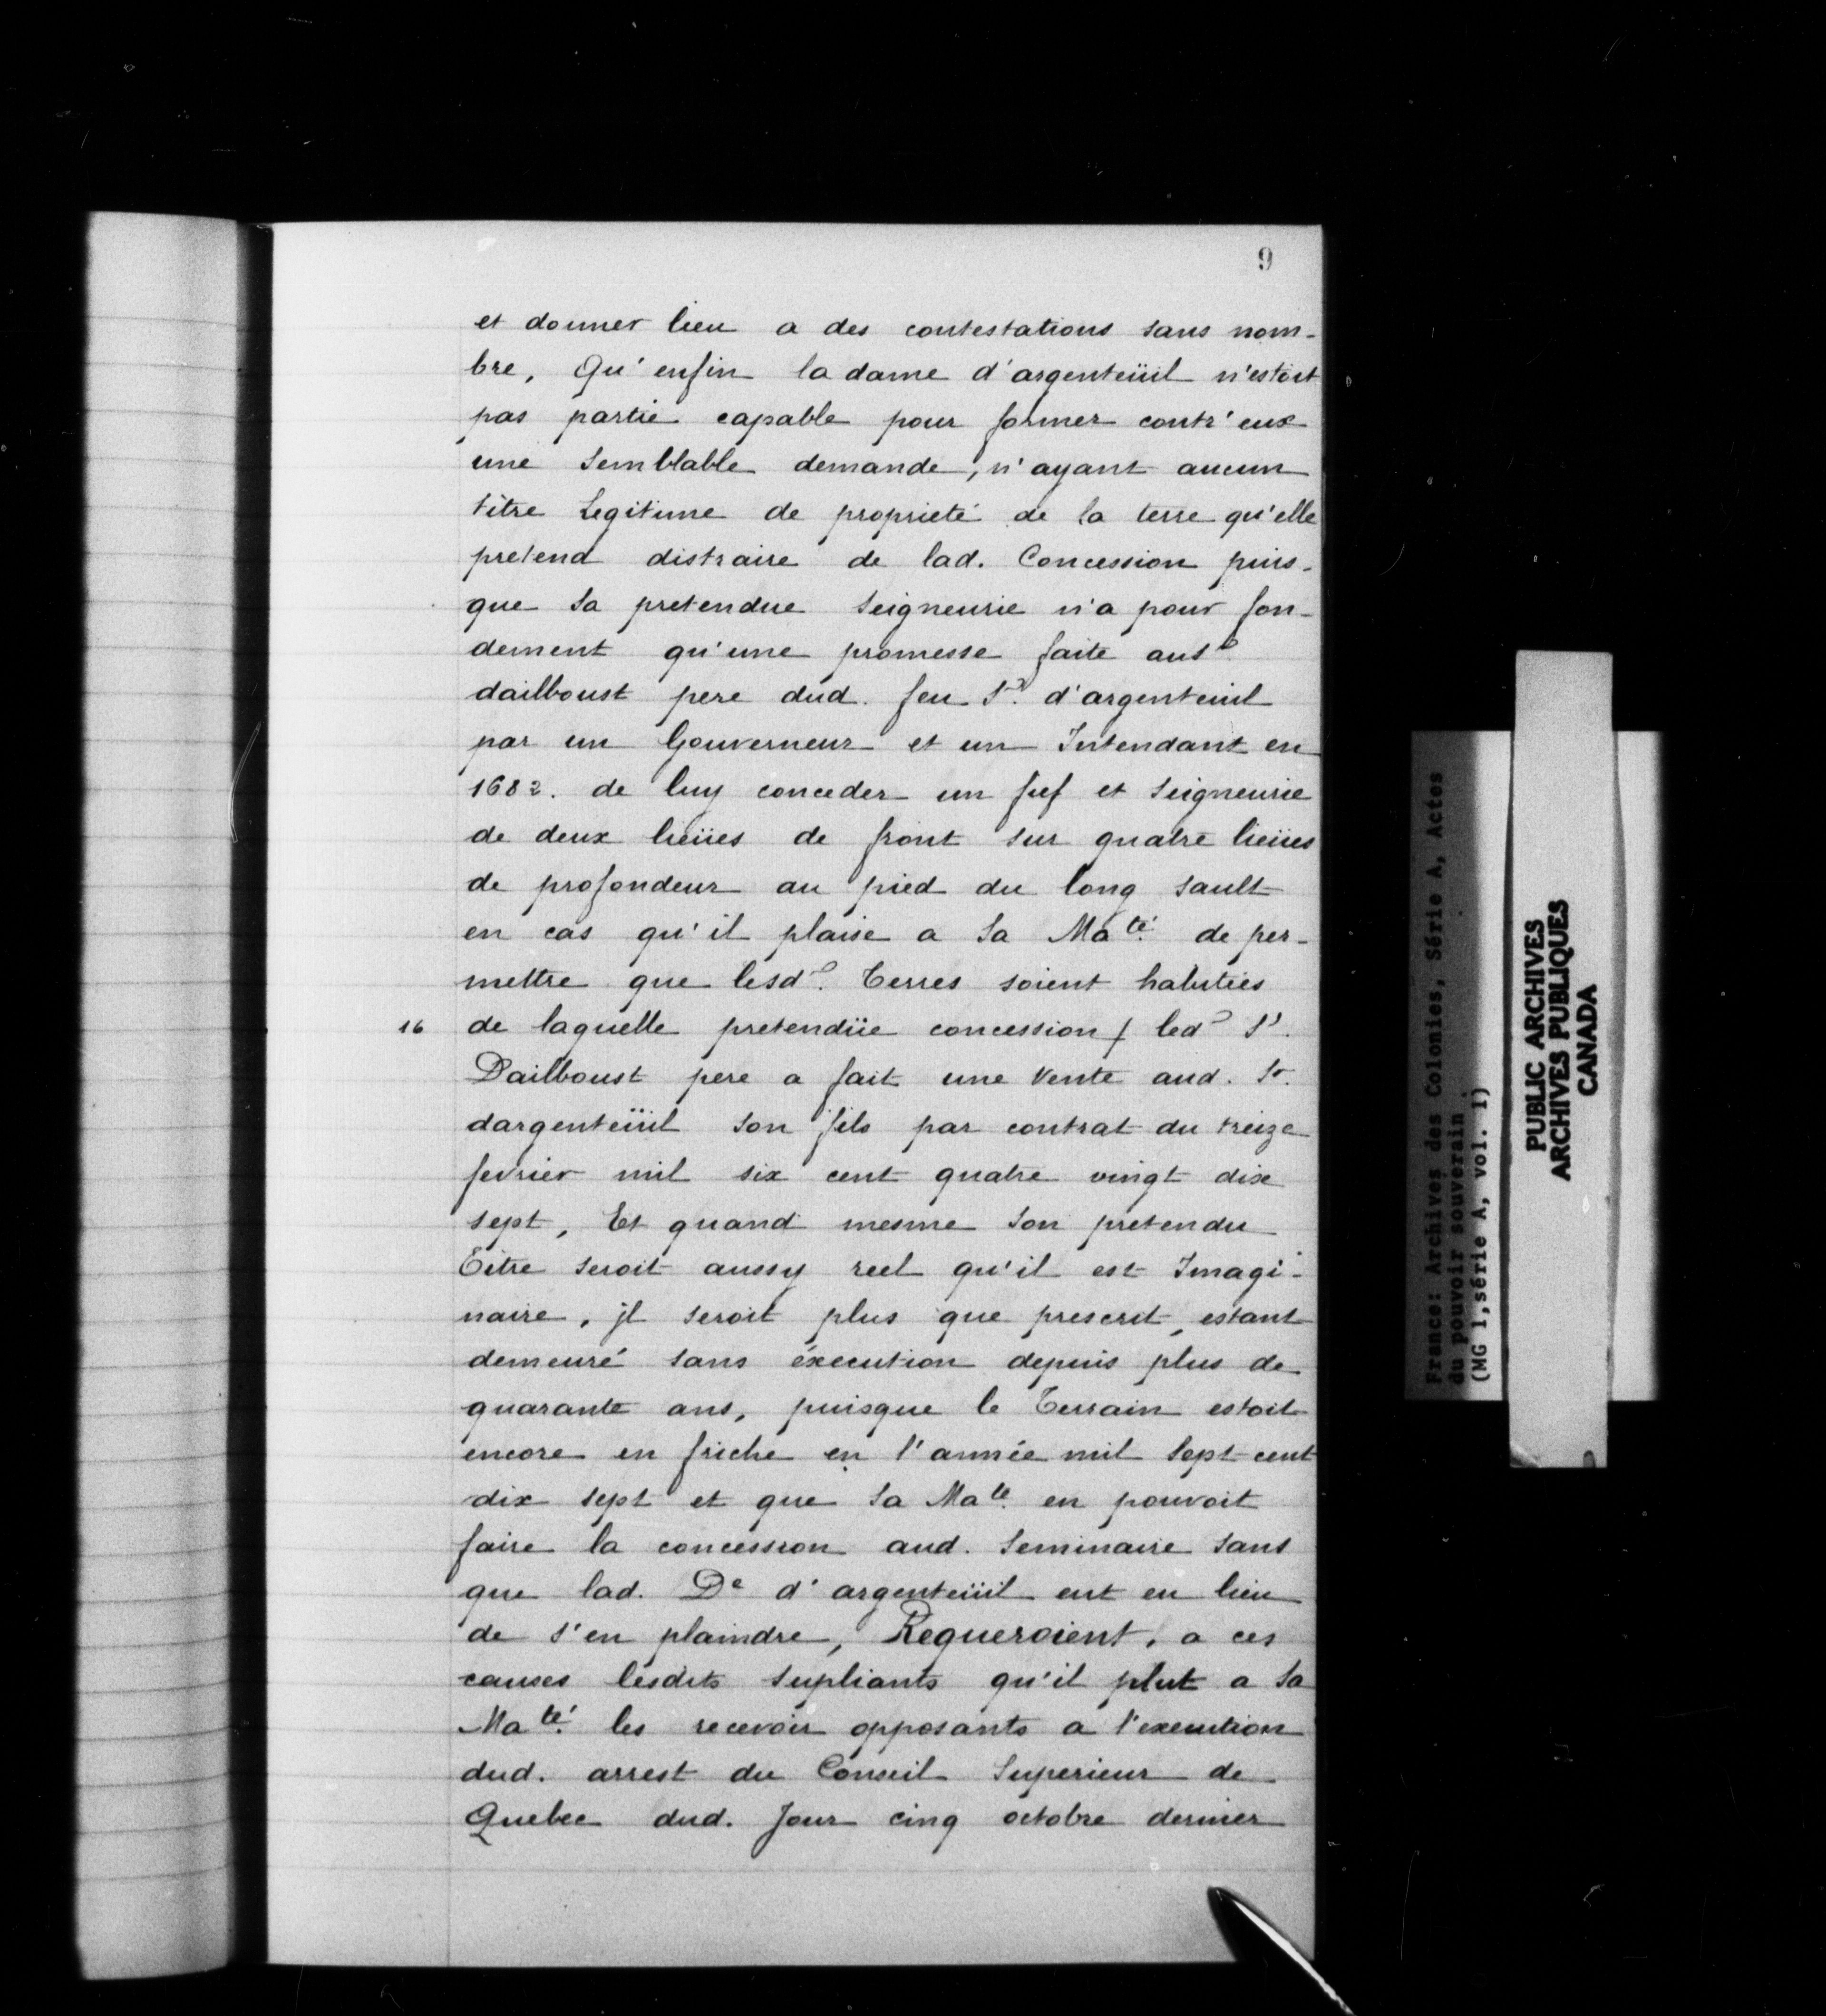 9
et donner lieu a des contestations sans nom-
bre, Qu'enfin la dame d'argenteüil n'estoit
pas partie capable pour former contr'eux
une semblable demande, n'ayant aucun
titre Legitime de proprieté de la terre qu'elle
pretend distraire de lad. Concession puis-
que sa pretendue seigneurie n'a pour fon-
dement qu'une promesse faite aus.
dailboust pere dud. feu Sr. d'argenteuil
par un Gouverneur et un Intendant en
1682. de luy conceder un fief et Seigneurie
de deux lieües de front sur quatre lieües
de profondeur au pied du long sault
en cas qu'il plaise a Sa Maté. de per-
mettre que lesd. Terres soient habitées
16 de laquelle pretendüe concession / led Sr.
Dailboust pere a fait une vente aud. Sr.
dargenteüil son fils par contrat du treize
fevrier mil six cent quatre vingt dix
sept, Et quand mesme son pretendu
Titre seroit aussy reel qu'il est Imagi-
naire, jl seroit plus que prescrit, estant
demeuré sans éxecution depuis plus de
quarante ans, puisque le Terrain estoit
encore en friche en l'année mil sept cent
dix sept et que Sa Mate. en pouvoit
faire la concession aud. Seminaire sans
que lad. De d'argenteüil eut eu lieu
de s'en plaindre, Requeroient, a ces
causes lesdits supliants qu'il plut a Sa
Maté. les recevoir opposants a l'execution
dud. arrest du Conseil Superieur de
Quebec dud. Jour cinq octobre dernier
France: Archives des Colonies, Série A, Actes
du pouvoir souverain.
(MG 1,série A, vol. 1)
PUBLIC ARCHIVES
ARCHIVES PUBLIQUES
CANADA